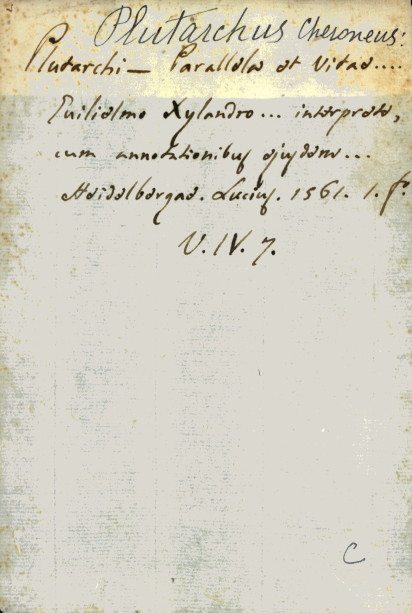 Plutarchus Cheroneus:
Plutarchi — Parallela et Vitae....
Guilielmo Xylandro... interprete,
cum annotationibus ejusdem...
Heidelbergae. Lucius. 1561. 1. f.º
V. IV. 7.
C